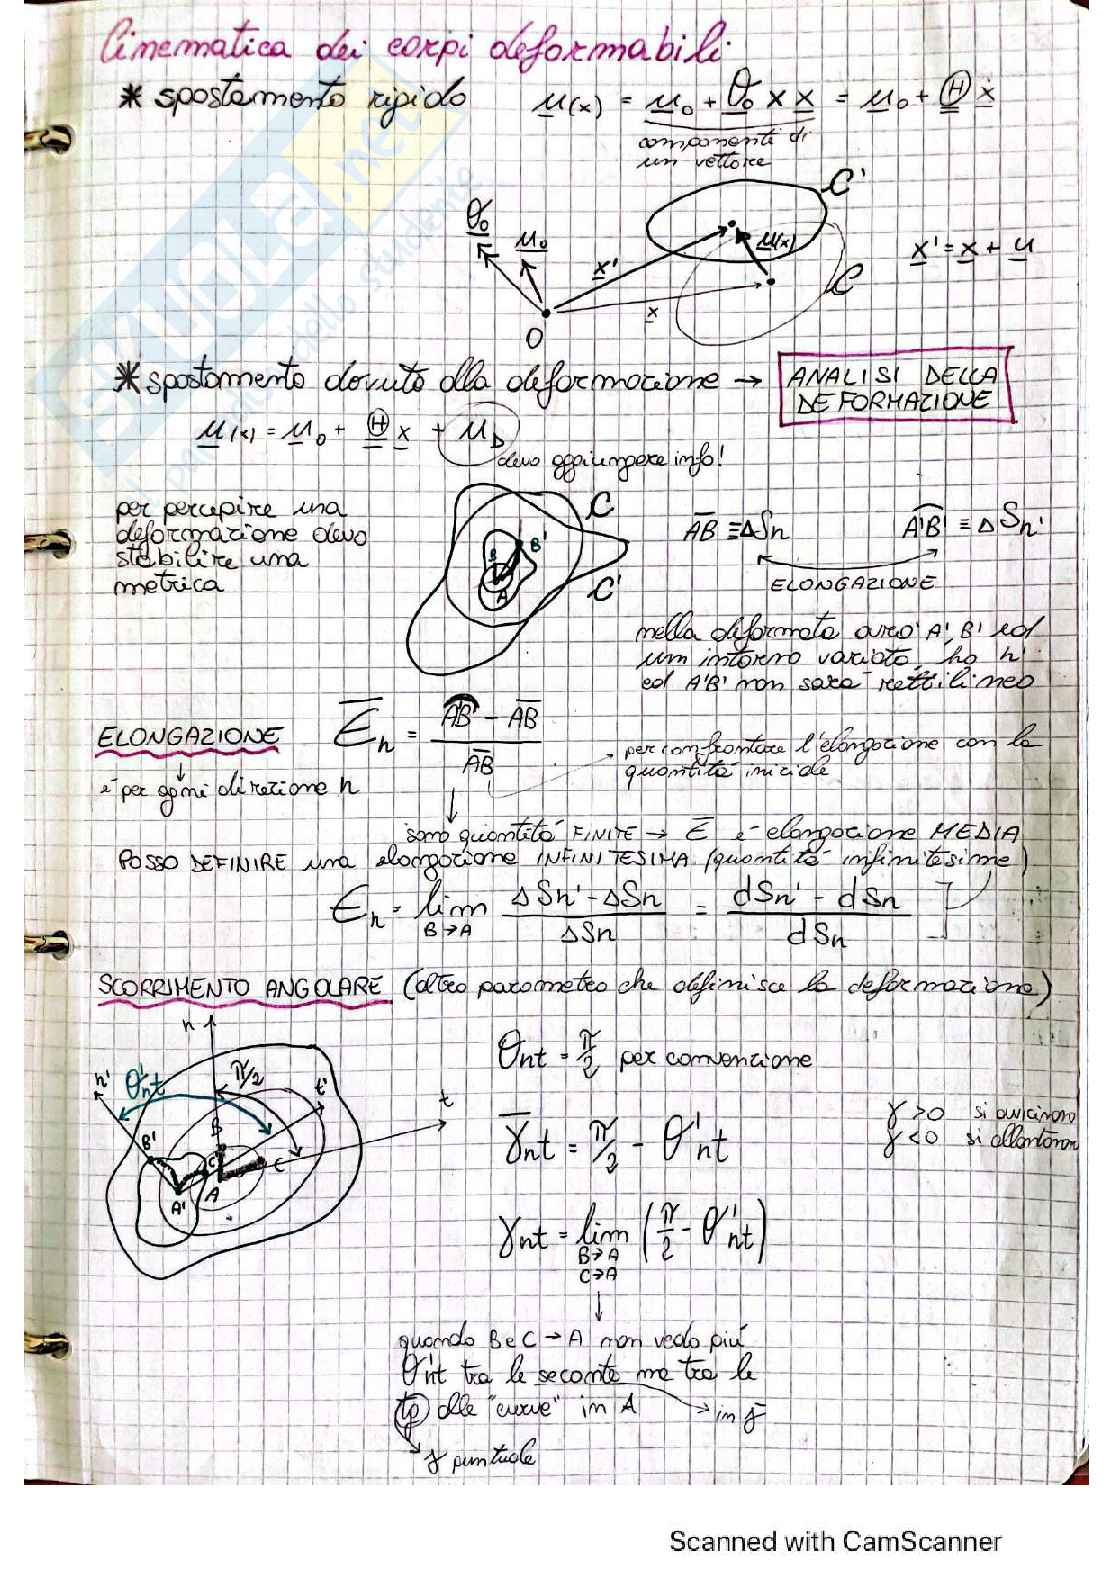 Cinematica dei corpi deformabili:
* spostamento rigido u(x) = u₀ + θ₀ x x = u₀ + Ⓗ x
componenti di
un vettore
C'
θ₀
u₀
u(x)
x'
x' = x + u
C
x
O
* spostamento dovuto alla deformazione → ANALISI DELLA
DEFORMAZIONE
u(x) = u₀ + Ⓗ x + u_D
devo aggiungere info!
per percepire una
deformazione devo
stabilire una
metrica
C
B'
B
A
C'
AB ≡ ΔSn A'B' ≡ ΔSn'
ELONGAZIONE
nella deformata avrò A', B' ed
un intorno variato, ho n'
ed A'B' non sarà rettilineo
ELONGAZIONE Ē_n = (A'B' - AB) / AB
per confrontare l'elongazione con la
quantità iniziale
è per ogni direzione n
sono quantità FINITE → Ē è elongazione MEDIA
POSSO DEFINIRE una elongazione INFINITESIMA (quantità infinitesime)
E_n = lim B→A (ΔSn' - ΔSn) / ΔSn = (dSn' - dSn) / dSn
SCORRIMENTO ANGOLARE (altro parametro che definisce la deformazione)
n
n'
θ'nt
π/2
t'
t
B'
B
C'
C
A'
A
θnt = π/2 per convenzione
γ̄nt = π/2 - θ'nt
γ>0 si avvicinano
γ<0 si allontanano
γnt = lim B→A C→A (π/2 - θ'nt)
quando B e C → A non vedo più
θ'nt tra le secante ma tra le
tg alle "curve" in A
→ in γ̄
γ puntuale
SKUOLA.net
Scanned with CamScanner